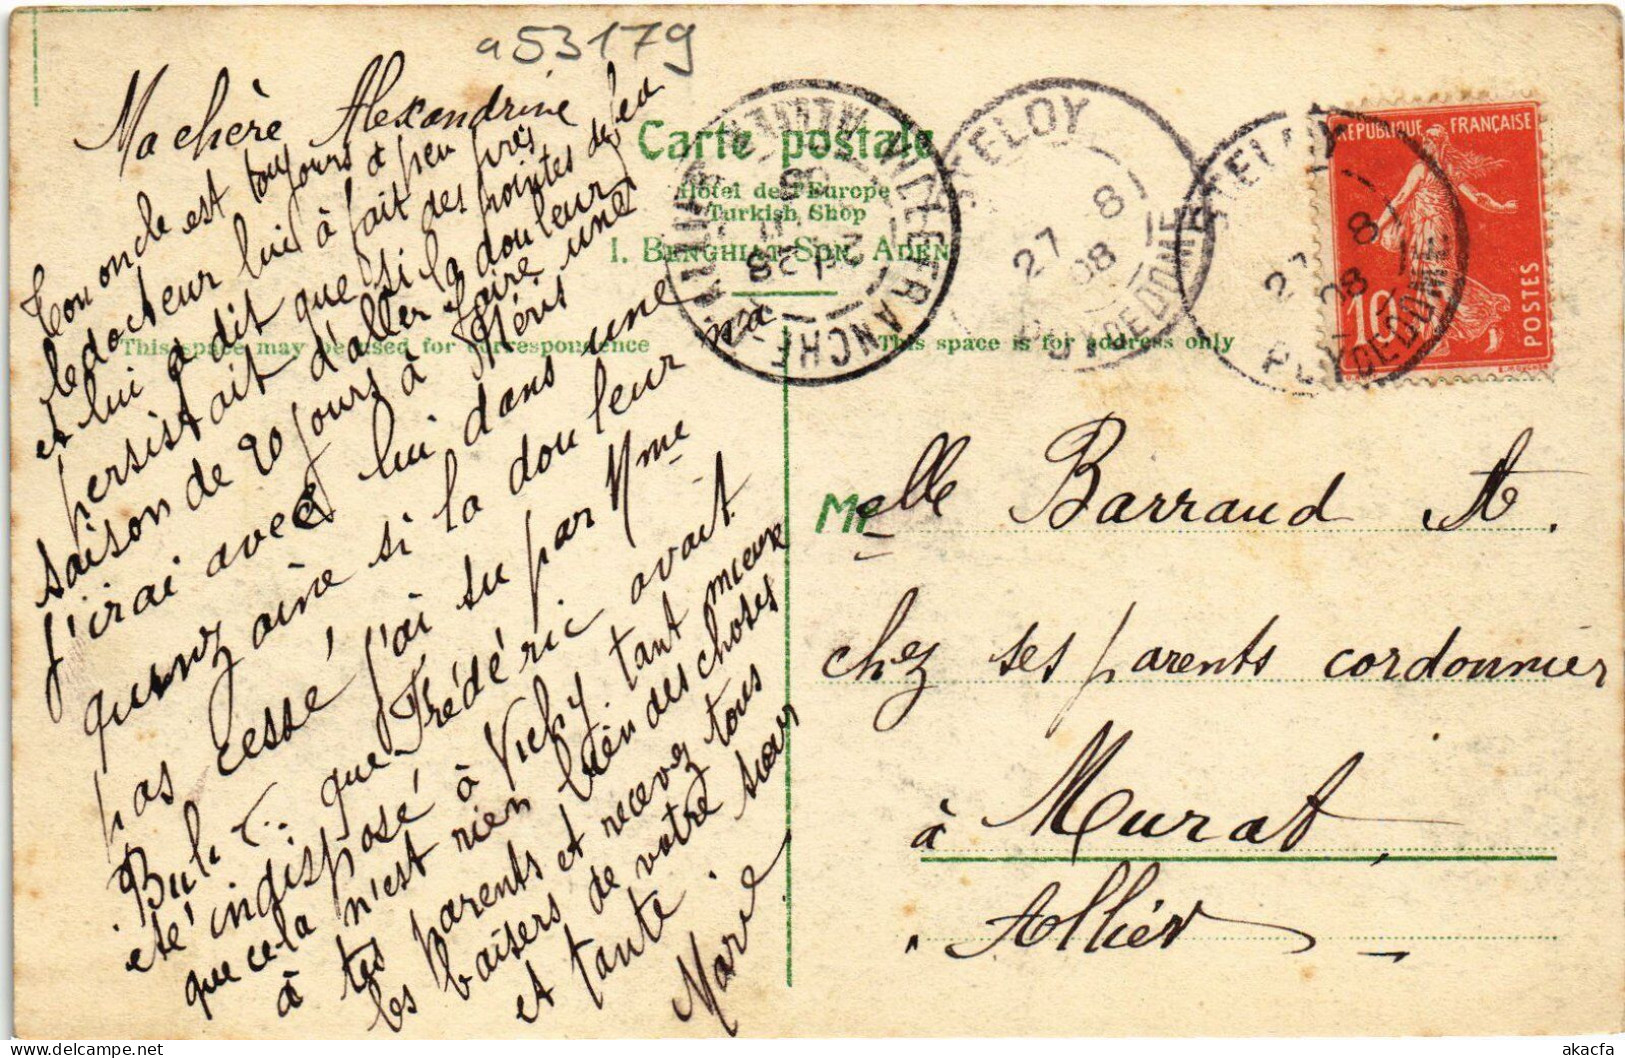 a53179
Ma chère Alexandrine
Ton oncle est toujours à peu près
le docteur lui à fait des pointes de feu
et lui a dit que si la douleur
persistait d'aller faire une
saison de 20 jours à Néris
j'irai avec lui dans une
quinzaine si la douleur n'a
pas cessé j'ai su par Mme
que Frédéric avait
été indisposé à Vichy. tant mieux
que cela n'est rien bien des choses
à tes parents et recevez tous
les baisers de votre sœur
et tante.
Marie
Carte postale
Hôtel de l'Europe
Turkish Shop
I. Benghiat Son, Aden
This space may be used for correspondence
This space is for address only
VILLEFRANCHE
ALLIER
St ELOY
27 8
08
PUY DE DOME
St ELOY
27 8
08
PUY DE DOME
RÉPUBLIQUE FRANÇAISE
10
POSTES
Melle Barraud A.
chez ses parents cordonnier
à Murat,
Allier
akacfa